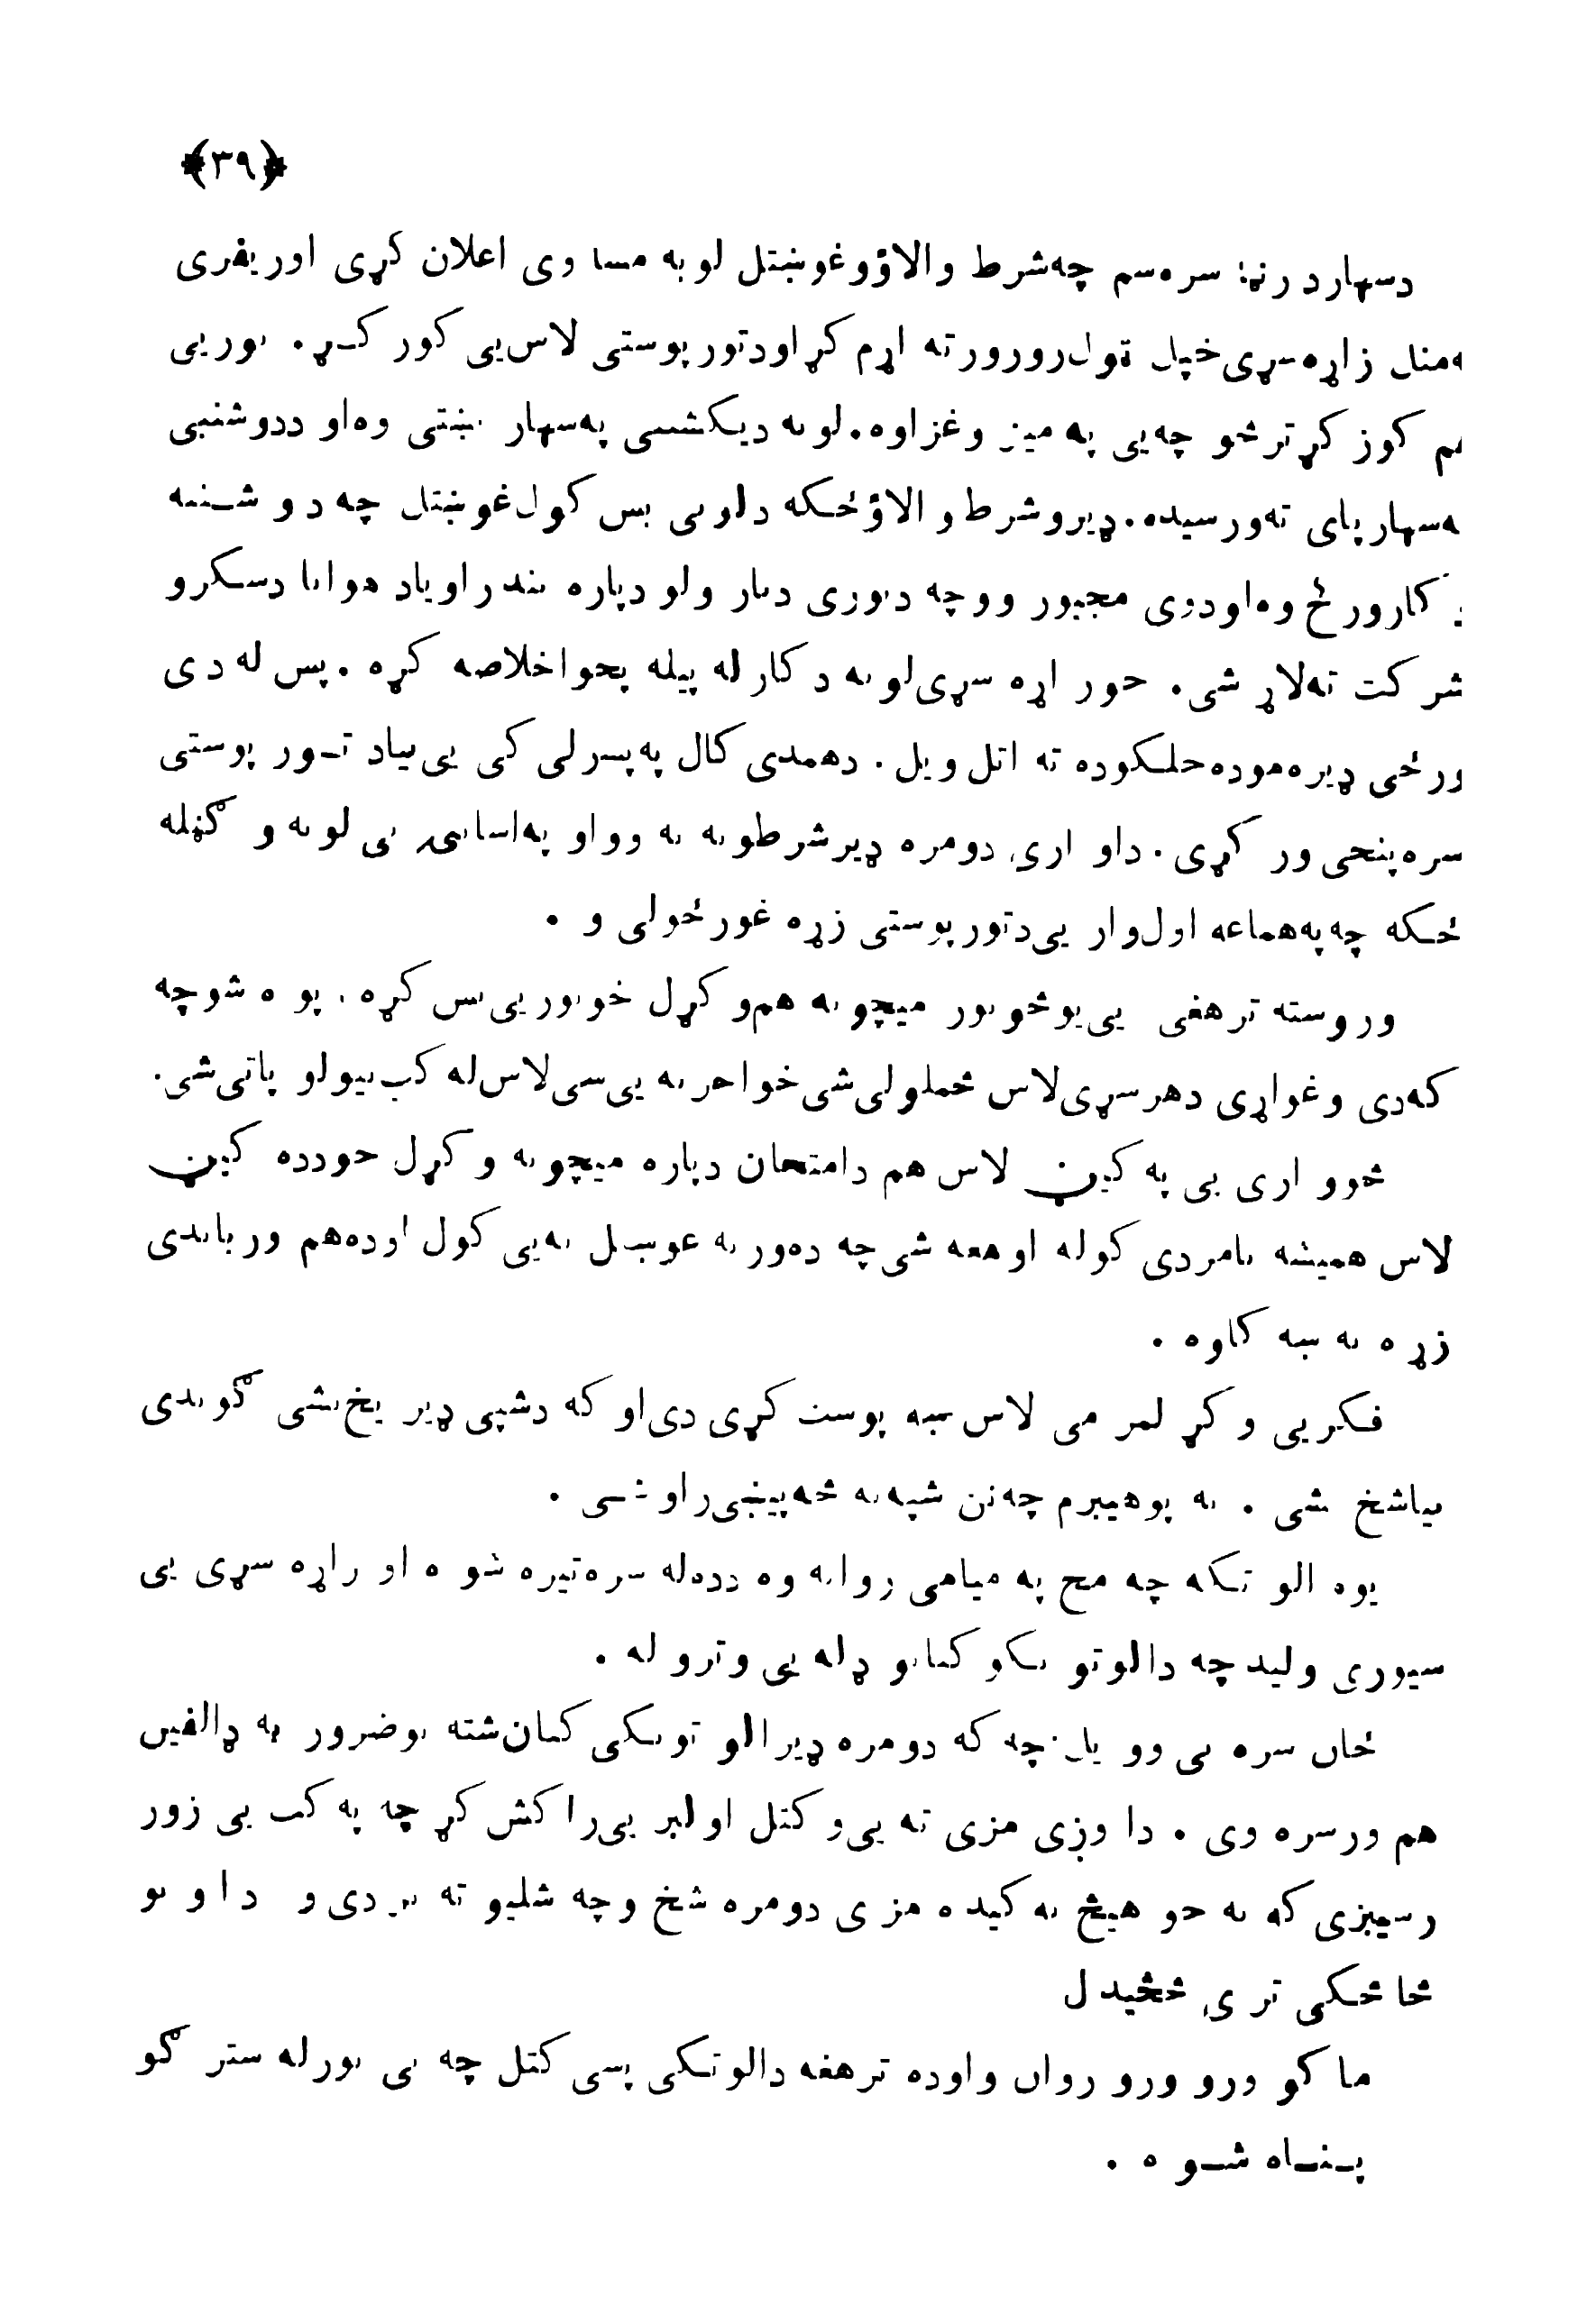 ﴿۳۹﴾
دسهار د رڼا سره سم چه شرط والاؤ وغوښتل لوبه مساوی اعلان کړی او ریفری
منل زاړه سړی خپل ټول زور ورته اړم کړ او د تور پوستی لاس یی کوز کړ. نور یی
هم کوز کړ تر څو چه یی په میز وغزاوه. لوبه د یکشنبی په سهار ښتی وه او د دوشنبی
په سهار پای ته ورسیده. ډیرو شرط والاؤ ځکه د لوبی بس کول غوښتل چه دوشنبه
د کار ورځ وه او دوی مجبور وو چه د بوری د بار ولو دپاره بندر او یا د هوانا د سکرو
شرکت ته لاړ شی. خو زاړه سړی لوبه د کار له پیله پخوا خلاصه کړه. پس له دی
ورځی ډیره موده خلکو ده ته اتل ویل. د همدی کال په پسرلی کی یی بیا د تور پوستی
سره پنجی ورکړی. دا واری دومره ډیر شرطونه نه وو او په اسانی یی لوبه وګټله
ځکه چه په هماغه اول وار یی د تور پوستی زړه غورځولی و.
وروسته تر هغی یی یو څو نور میچونه هم وکړل خو نور یی بس کړه. پوه شو چه
که دی وغواړی د هر سړی لاس څملولی شی خو اخر به یی سی لاس له کب نیولو پاتی شی.
څو واری یی په کیڼ لاس هم د امتحان دپاره میچونه وکړل خو د ده کیڼ
لاس همیشه نامردی کوله او هغه شی چه ده ورنه غوښتل نه یی کول او ده هم ورباندی
زړه نه ښه کاوه.
فکر یی وکړ لمر می لاس ښه پوست کړی دی او که د شپی ډیر یخ نشی ګوندی
بیا شخ نشی. نه پوهیږم چه نن شپه به څه پیښی راوشی.
یوه الوتکه چه مخ په میامی روانه وه د ده له سره تیره شوه او زاړه سړی یی
سیوری ولید چه د الوتونکو کبانو ډله یی وتروله.
ځان سره یی وویل چه که دومره ډیر الوتونکی کبان شته نو ضرور به ډالفین
هم ورسره وی. دا وژی مزی ته یی وکتل او لږ یی را کش کړ چه په کب یی زور
رسیږی که نه خو هیڅ نه کیده مزی دومره شخ و چه شلیدو ته نږدی و د اوبو
څاڅکی تری څڅیدل
ماکو ورو ورو روان و او ده تر هغه د الوتکی پسی کتل چه یی نور له سترګو
پناه شوه.